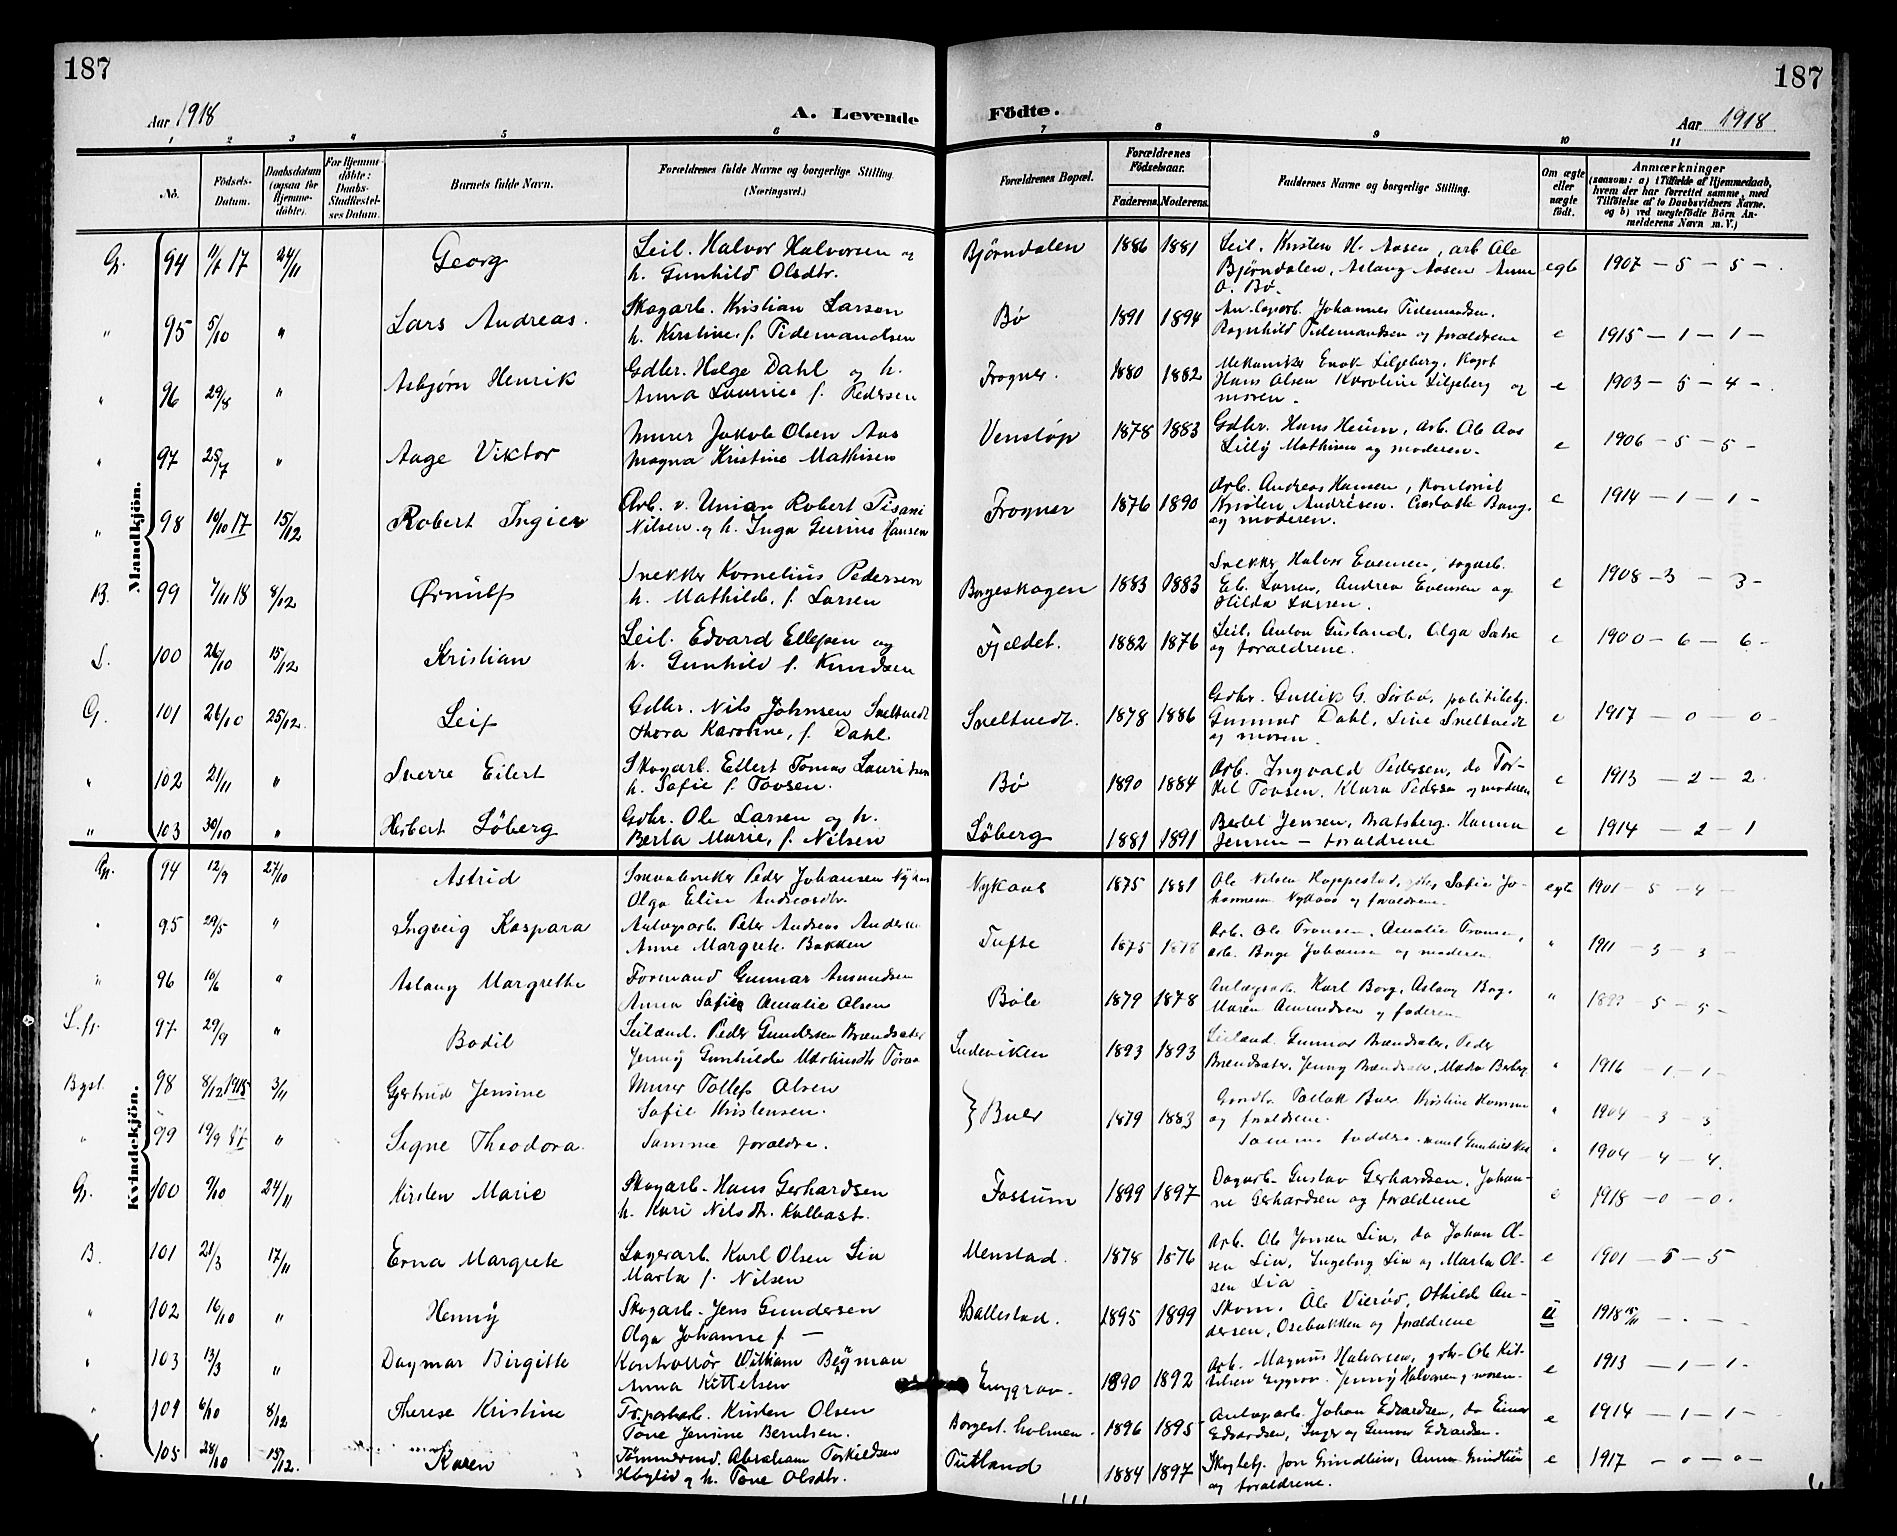 187
187
Aar 1918
A. Levende
Födte.
Aar 1918
1 2 3 4 5 6 7 8 9 10 11
No.
Födsels-Datum.
Daabsdatum (ogsaa for Hjemmedöbte).
For Hjemmedöbte: Daabs-Stadfæstelses Datum.
Barnets fulde Navn.
Forældrenes fulde Navne og borgerlige Stilling. (Næringsvei.)
Forældrenes Bopæl.
Forældrenes Födselsaar.
Faderens. Moderens.
Faddernes Navne og borgerlige Stilling.
Om ægte eller uægte födt.
Anmærkninger
(saasom: a) i Tilfælde af Hjemmedaab, hvem der har forrettet samme, med Tilföielse af to Daabsvidners Navne, og b) ved uægtefödte Börn Anmelderens Navn m. V.)
Mandkjön.
G. 94 17 24/11 Georg
Seil. Halvor Halvorsen og
h. Gunhild Olsdtr.
Bjørndalen 1886 1881
Seil. Kristen H. Aasen, arb Ole
Bjørndalen, Aslaug Aasen Anne
O. Bø.
egte 1907 - 5 - 5 -
" 95 5/10 " Lars Andreas.
Skogarb. Kristian Larsen
h. Kirstine f. Tidemandsen
Bø 1891 1894
Johannes Tidemandsen.
Ragnhild Tidemandsen og forældrene
e 1915 - 1 - 1 -
" 96 29/8 " Asbjørn Henrik
Gdbr. Helge Dahl og h.
Anna Laurine f. Pedersen
Frogner. 1880 1882
Mekaniker Enok Liljeberg,
Hans Olsen Karoline Liljeberg og
moren.
e 1903 - 5 - 4 -
" 97 25/7 " Aage Viktor
Murer Jakob Olsen Aas
Magna Kristine Mathisen
Venstøp 1878 1883
Gdbr. Hans Heium, Arb. Ole Aas
Lilly Mathisen og moderen.
e 1906 - 5 - 5 -
" 98 10/10 17 15/12 Robert Ingier
Arb. v. Union Robert Pisani
Nilsen og h. Inga Gurine Hansen
Frogner 1876 1890
Arb. Andreas Hansen, Kontorist
og moderen.
e 1914 - 1 - 1 -
B. 99 7/11 18 8/12 Ørnulf
Snekker Kornelius Pedersen
h. Mathilde f. Larsen
Borgeskogen 1883 1883
Snekker Halvor Evensen,
Larsen, Andrea Evensen og
Hilda Larsen.
e 1908 - 3 - 3 -
S. 100 26/10 15/12 Kristian
Seil. Edvard Ellefsen og
h. Gunhild f. Knudsen
Fjeldet. 1882 1876
Seil. Anton Gusland, Olga
og forældrene.
e 1900 - 6 - 6 -
G. 101 26/10 25/12 Leif
Gdbr. Nils Johnsen Sneltvedt
Thora Karoline, f. Dahl.
Sneltvedt. 1878 1886
Gdbr. Gullik G. politibetj.
Gunnar Dahl, Line Sneltvedt
og moren.
e 1917 - 0 - 0 -
" 102 21/11 " Sverre Eilert
Skogarb. Ellert Tomas Lauritsen
h. Sofie f. Tovsen.
Bø 1890 1884
Arb. Ingvald Pedersen, do Tor-
kel Tovsen, Klara Pedersen og moderen
e 1913 - 2 - 2
" 103 30/10 " Herbert Løberg
Gdbr. Ole Larsen og h.
Berta Marie, f. Nilsen
Løberg 1881 1891
Bertel Jensen, Bratsberg. Hanna
Jensen - forældrene
e 1914 - 2 - 1
Kvindekjön.
G. 94 12/9 27/10 Astrid
Peder Johansen Nykaas
Olga Elise Andreasdtr.
Nykaas 1875 1881
Ole Nilsen Hoppestad, Sofie Jo-
hannesen Nykaas og forældrene.
egte 1901 - 5 - 4 -
" 95 29/5 " Ingveig Kaspara
Anlægsarb. Peter Andreas Andersen
Anne Margrete Bakken
Tufte 1875 1878
Arb. Ole Fransen, Amalie Fransen,
arb. Johansen og moderen.
" 1911 - 3 - 3 -
" 96 10/6 " Aslaug Margrethe
Formand Gunnar Amundsen
Anna Sofie Amalie Olsen
Bøle 1879 1878
Karl Borg, Aslaug Borg,
Maren Amundsen og faderen
" - 5 - 5 -
97. 29/9 " Bodil
Peder Gundersen Brændsæter
Jenny Gunhilde
1893 1893
Gunnar Brændsæter, Peder
Brændsæter, Jenny Brændsæter,
" 1916 - 1 - 1 -
98 8/12 3/11 Gjertrud Jensine
Murer Tollef Olsen
Sofie Kristensen.
} Buer 1879 1883
Buer Kristine Hansen
og forældrene.
" 1904 - 3 - 3
" 99 19/9 " Signe Theodora.
Samme forældre.
Samme faddere
" 1904 - 4 - 4.
G. 100 9/10 24/11 Kirsten Marie
Skogarb. Hans Gerhardsen
h. Kari Nilsdtr.
Fossum 1899 1897
Dagarb. Gustav Gerhardsen, Johan-
ne Gerhardsen og forældrene
e 1918 - 0 - 0 -
B. 101 21/3 17/11 Erna Margrete
Lagerarb. Karl Olsen Lia
Marta f. Nilsen
Menstad. 1878 1876
Arb. Ole Jensen Lia, do Johan Ol-
sen Lia, Ingeborg Lia og Marta Ol-
sen Lia
e 1901 - 5 - 5
" 102 16/10 " Henny
Skogarb. Jens Gundersen
Olga Johanne f. -
Ballestad. 1895 1899
Skom. Ole Vierød, Othilde An-
dersen, Osebakken og forældrene
u 1918
" 103 13/3 " Dagmar Birgitte
Kontrollør William Bergman
Anna Kittelsen
1890 1892
Arb. Magnus Halvorsen, gdbr. Ole Kit-
telsen Jenny Halvorsen og moren.
e 1913 - 1 - 1 -
" 104 6/10 8/12 Therese Kristine
Kristen Olsen
Tone Jensine Berntsen.
Borgest. holmen. 1896 1895
Anlægsarb. Johan Edvardsen, do Einar
Edvardsen, Inger og Gunvor Edvardsen.
e 1914 - 1 - 1 -
105 28/10 15/12. Karen
Tømmermd. Abraham Torkildsen
og h. Tone Olsdtr.
1884 1897
Jon Grindlien, Anna Grindlien
og forældrene.
e 1917 - 0 - 0 -